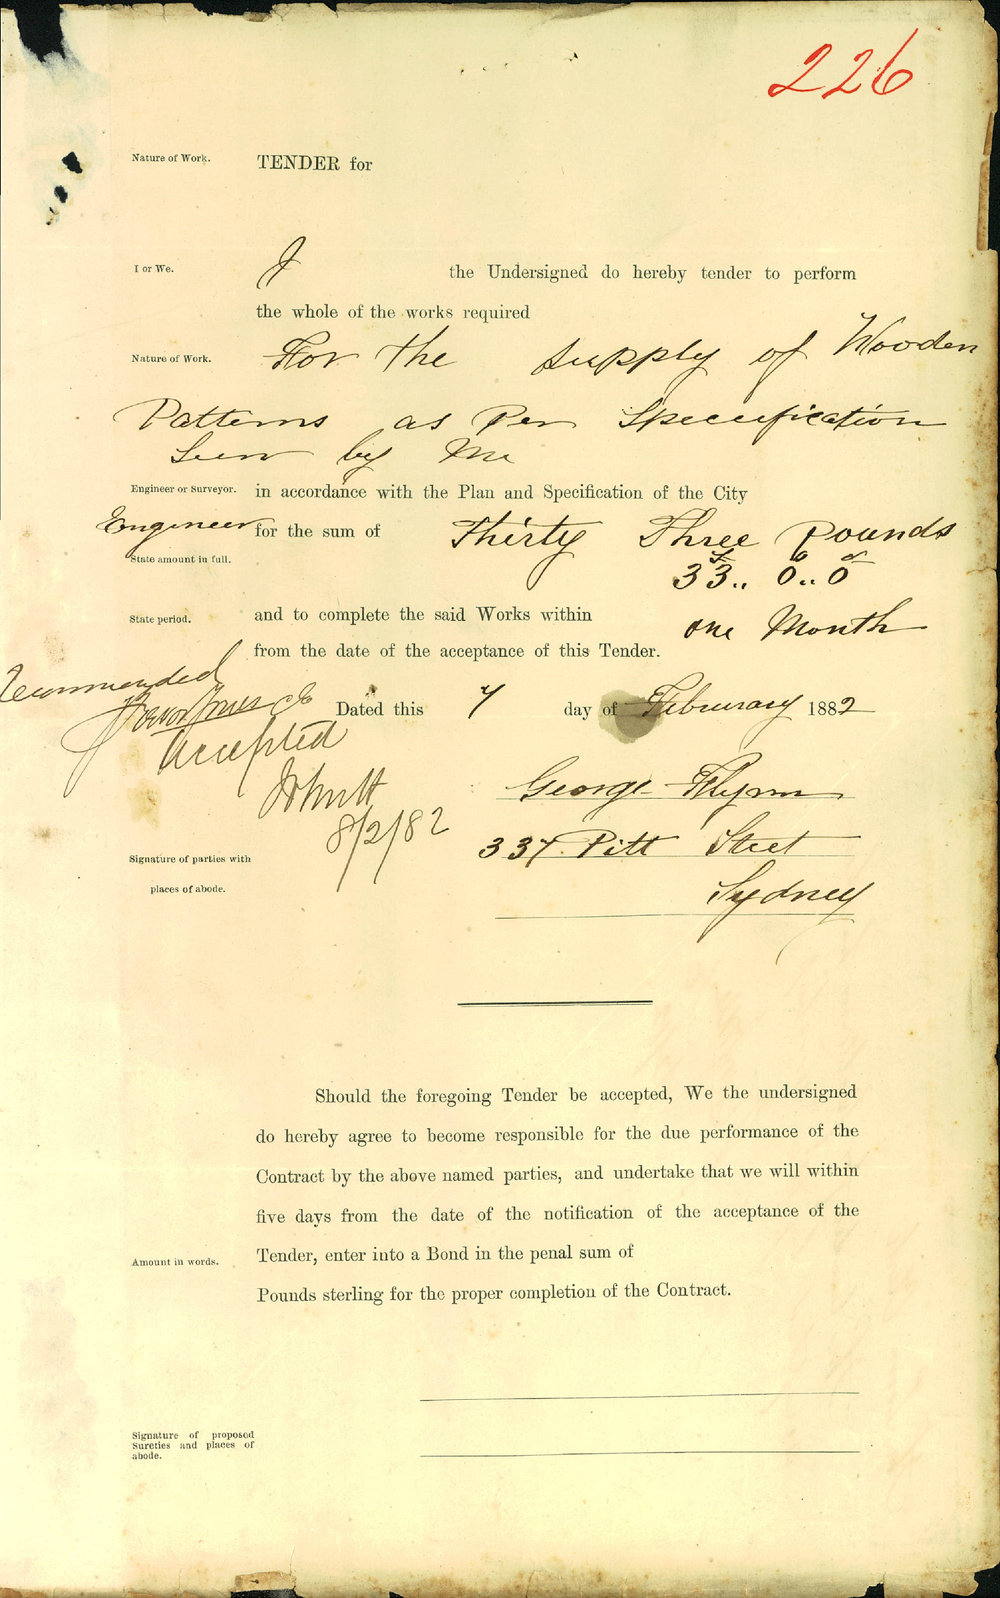 226
Nature of Work. TENDER for
I or We. I the Undersigned do hereby tender to perform
the whole of the works required
Nature of Work. For the supply of Wooden
Patterns as Per Speceification
Seen by Me
Engineer or Surveyor. in accordance with the Plan and Specification of the City
Engineer for the sum of Thirty Three Pounds
State amount in full. 33.. 0.. 0
State period. and to complete the said Works within one Month
from the date of the acceptance of this Tender.
Recommended
Dated this 7 day of February 1882
Accepted
George Flynn
8/2/82
337 Pitt Street
Signature of parties with
places of abode. Sydney
Should the foregoing Tender be accepted, We the undersigned
do hereby agree to become responsible for the due performance of the
Contract by the above named parties, and undertake that we will within
five days from the date of the notification of the acceptance of the
Amount in words. Tender, enter into a Bond in the penal sum of
Pounds sterling for the proper completion of the Contract.
Signature of proposed
Sureties and places of
abode.